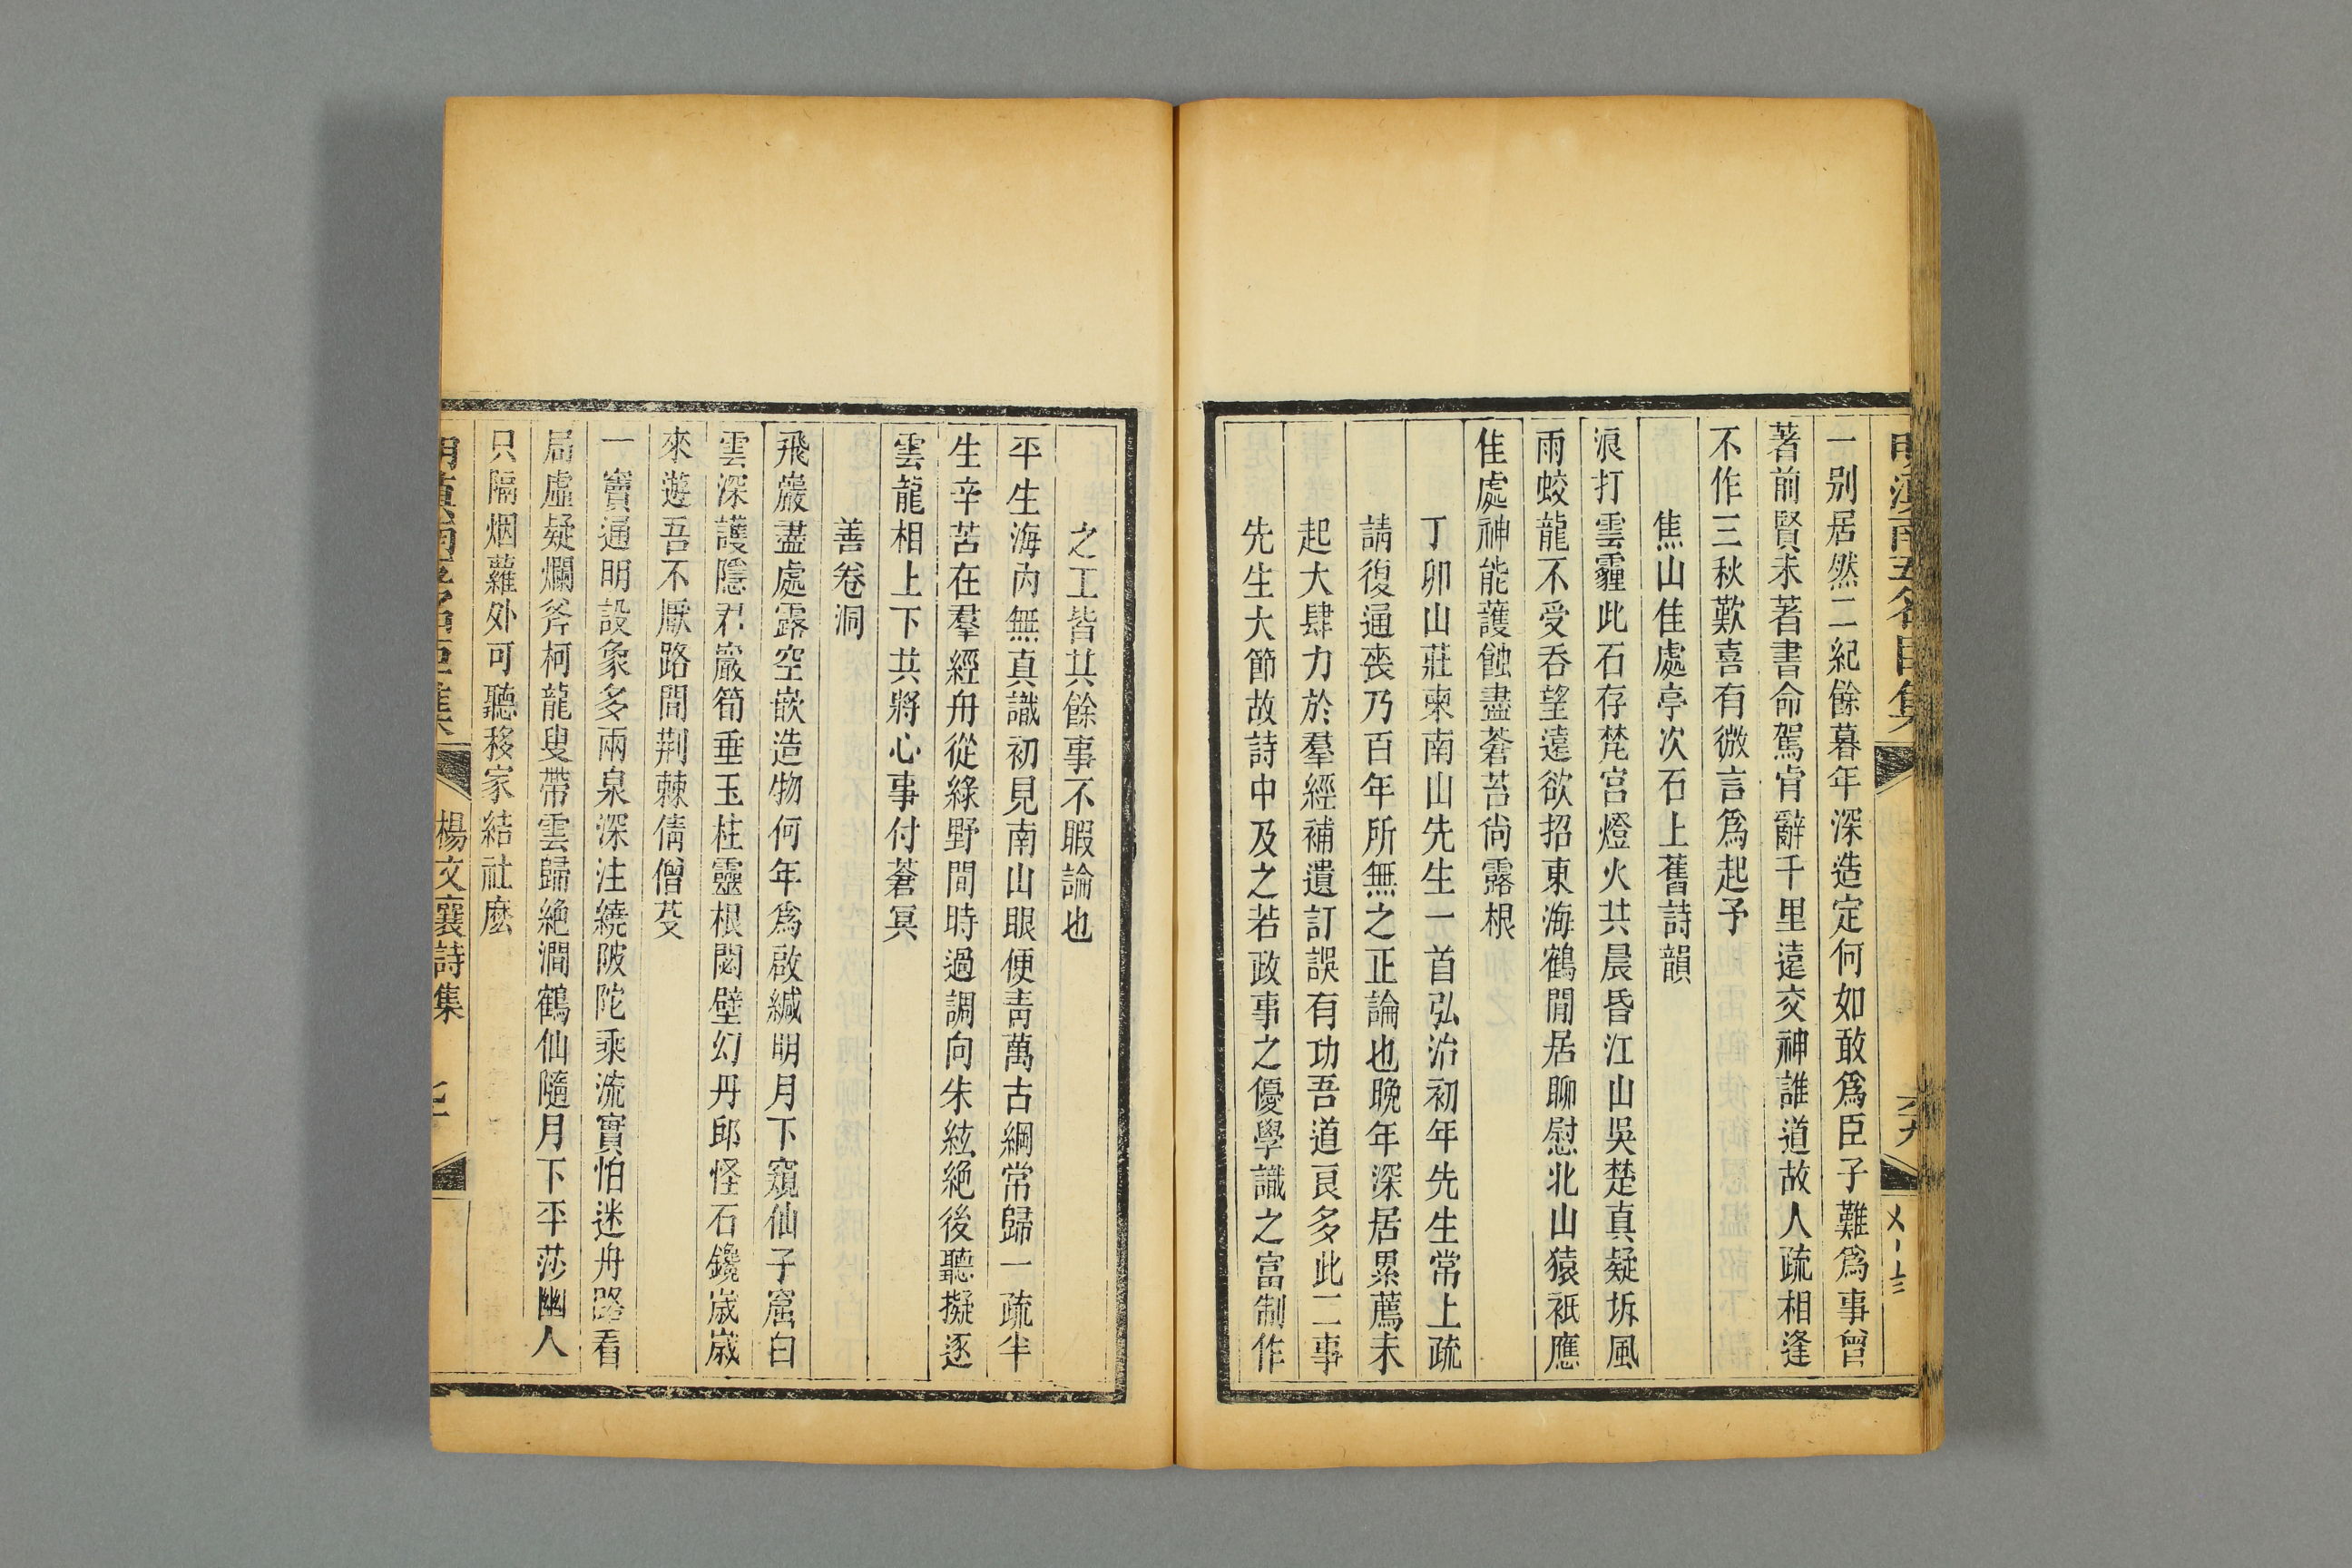 一别居然二紀餘暮年深造定何如敢爲臣子難爲事曾
著前賢未著書命駕肯辭千里遠交神誰道故人疏相逢
不作三秋歎喜有微言爲起予
焦山佳處亭次石上舊詩韻
浪打雲霾此石存梵宫燈火共晨昏江山吳楚真疑坼風
雨蛟龍不受吞望遠欲招東海鶴閒居聊慰北山猿祇應
佳處神能護蝕盡蒼苔尚露根
丁卯山莊柬南山先生一首弘治初年先生常上疏
請復通喪乃百年所無之正論也晚年深居累薦未
起大肆力於羣經補遺訂誤有功吾道良多此二事
先生大節故詩中及之若政事之優學識之富制作
之工皆其餘事不暇論也
平生海內無真識初見南山眼便青萬古綱常歸一疏半
生辛苦在羣經舟從綠野間時過調向朱絃絶後聽擬逐
雲龍相上下共將心事付蒼冥
善卷洞
飛巖盡處露空嵌造物何年爲啟緘明月下窺仙子窟白
雲深護隱君巖筍垂玉柱靈根閟壁幻丹邱怪石鑱歲歲
來遊吾不厭路間荆棘倩僧芟
一竇通明設象多兩泉深注繞陂陀乘流實怕迷舟路看
局虛疑爛斧柯龍叟帶雲歸絶澗鶴仙隨月下平莎幽人
只隔烟蘿外可聽移家結社麽
楊文襄詩集